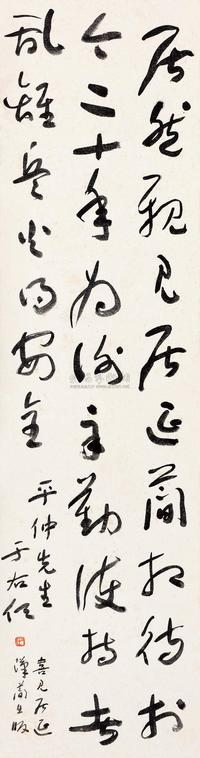 居然親見居延簡相待於
今二十年為謝辛勤護持者
乱離兵火得安全
平仲先生
于右任
喜見居延
漢簡出版